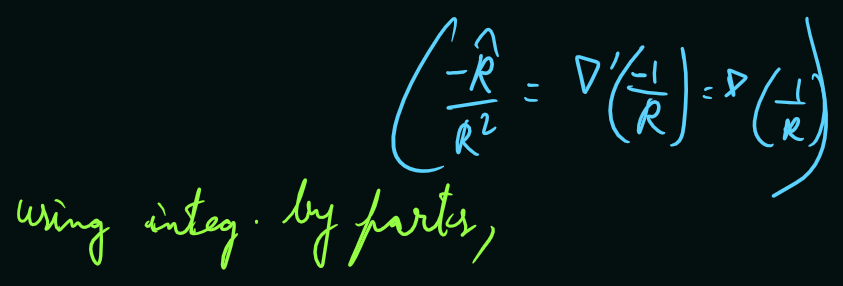 ( -R̂/R² = ∇'(-1/R) = ∇(1/R) )
using integ. by parts,